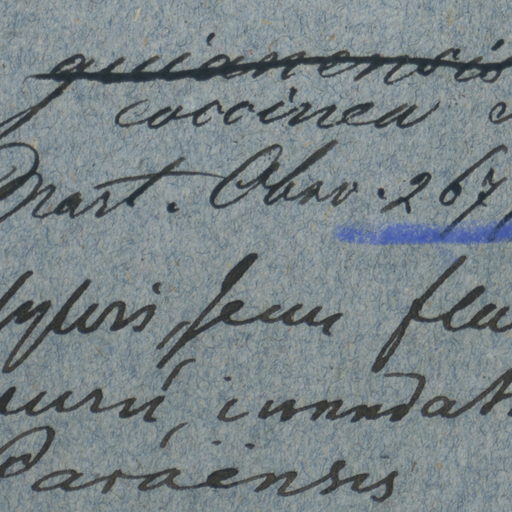 guianensis
coccinea
Mart. Obsv. 267
sylvis, secus flu
inundat
Paraënsis